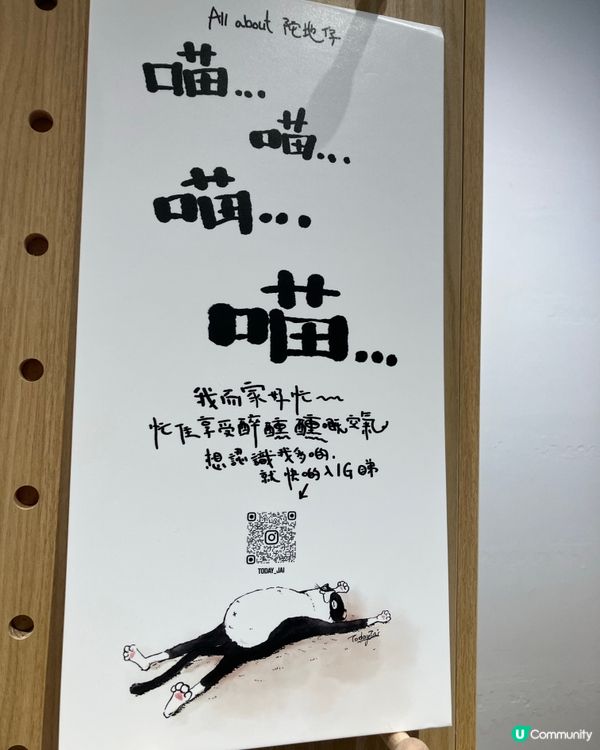 All about 陀地仔
喵...
喵...
喵...
喵...
我而家好忙~~
忙住享受醉醺醺嘅空氣
想認識我多啲.
就快啲入IG睇
TODAY_JAI
TodayZai
U Community